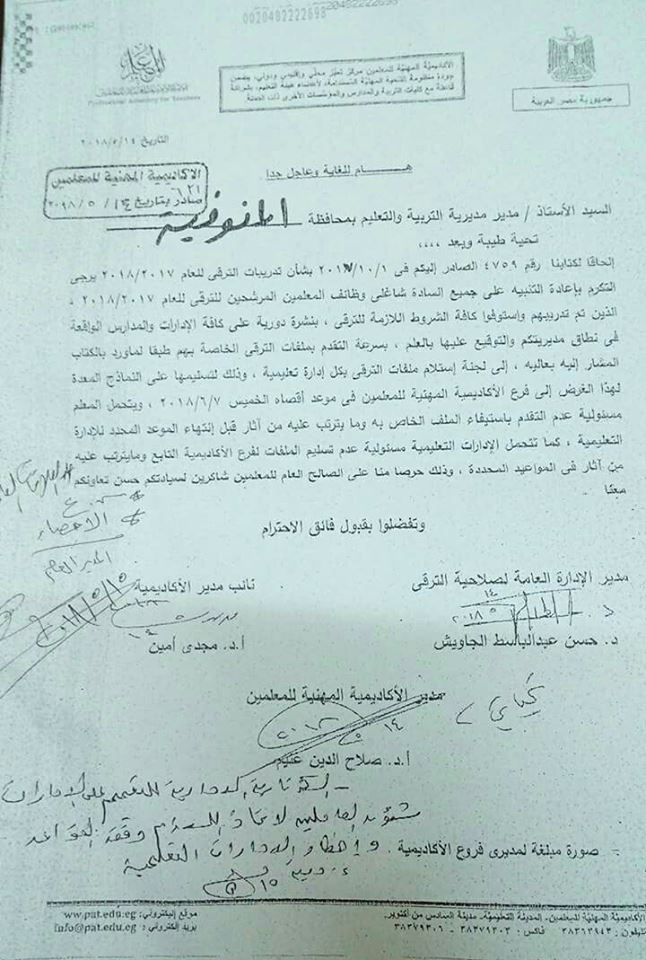 0020482222698
الأكاديمية المهنية للمعلمين مركز تميز محلي وإقليمي ودولي، يضمن
جودة منظومة التنمية المهنية المستدامة، لأعضاء هيئة التعليم، بالشراكة
الفاعلة مع كليات التربية والمدارس والمؤسسات الأخرى ذات الصلة
Professional Academy for Teachers
جمهورية مصر العربية
التاريخ ٢٠١٨/٥/١٤
هــــام للغاية وعاجل جدا
الأكاديمية المهنية للمعلمين
صادر بتاريخ ١٤ / ٥ / ٢٠١٨
السيد الأستاذ / مدير مديرية التربية والتعليم بمحافظة المنوفية
تحية طيبة وبعد ،،،،
إلحاقا لكتابنا رقم ٤٧٥٩ الصادر إليكم فى ٢٠١٧/١٠/١ بشأن تدريبات الترقى للعام ٢٠١٨/٢٠١٧ يرجى
التكرم بإعادة التنبيه على جميع السادة شاغلى وظائف المعلمين المرشحين للترقى للعام ٢٠١٨/٢٠١٧ ،
الذين تم تدريبهم واستوفوا كافة الشروط اللازمة للترقى ، بنشرة دورية على كافة الإدارات والمدارس الواقعة
فى نطاق مديريتكم والتوقيع عليها بالعلم ، بسرعة التقدم بملفات الترقى الخاصة بهم طبقا لماورد بالكتاب
المشار إليه بعاليه ، إلى لجنة إستلام ملفات الترقى بكل إدارة تعليمية ، وذلك لتسليمها على النماذج المعدة
لهذا الغرض إلى فرع الأكاديمية المهنية للمعلمين فى موعد أقصاه الخميس ٢٠١٨/٦/٧ ، ويتحمل المعلم
مسئولية عدم التقدم باستيفاء الملف الخاص به وما يترتب عليه من آثار قبل إنتهاء الموعد المحدد للإدارة
التعليمية ، كما تتحمل الإدارات التعليمية مسئولية عدم تسليم الملفات لفرع الأكاديمية التابع ومايترتب عليه
من آثار فى المواعيد المحددة ، وذلك حرصا منا على الصالح العام للمعلمين شاكرين لسيادتكم حسن تعاونكم
معنا .
وتفضلوا بقبول فائق الاحترام
الاحصاء
المدير العام
مدير الإدارة العامة لصلاحية الترقى
نائب مدير الأكاديمية
د. حسن عبدالباسط الجاويش
أ.د. مجدى أمين
مدير الأكاديمية المهنية للمعلمين
أ.د. صلاح الدين غنيم
صورة مبلغة لمديرى فروع الأكاديمية .
واخطار الادارات التعليمية
الأكاديمية المهنية للمعلمين- المدينة التعليمية- مدينة السادس من أكتوبر.
تليفون : ٣٨٢٦٣٩٤٣ فاكس : ٣٨٣٧٩٢٠٣ - ٣٨٣٧٩٣٠٦
موقع إليكتروني: www.pat.edu.eg
بريد إليكتروني : info@pat.edu.eg